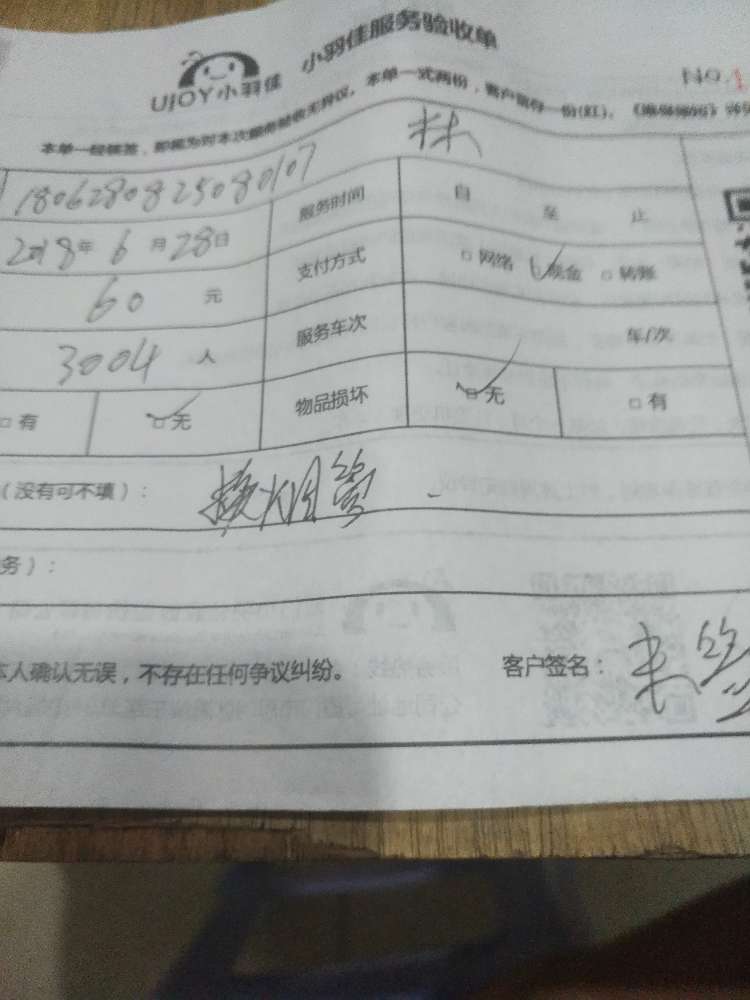 UJOY小羽佳 小羽佳服务验收单
NO.
本单一经核签，即视为对本次服务验收无异议。本单一式两份，客户留存一份(红)。
林
1806280825080107 服务时间 自 至 止
2018年6月28日 支付方式 网络 现金 转账
60 元 服务车次 车/次
3004 人
有 无 物品损坏 无 有
（没有可不填）： 换烟管
务）：
本人确认无误，不存在任何争议纠纷。 客户签名：未签